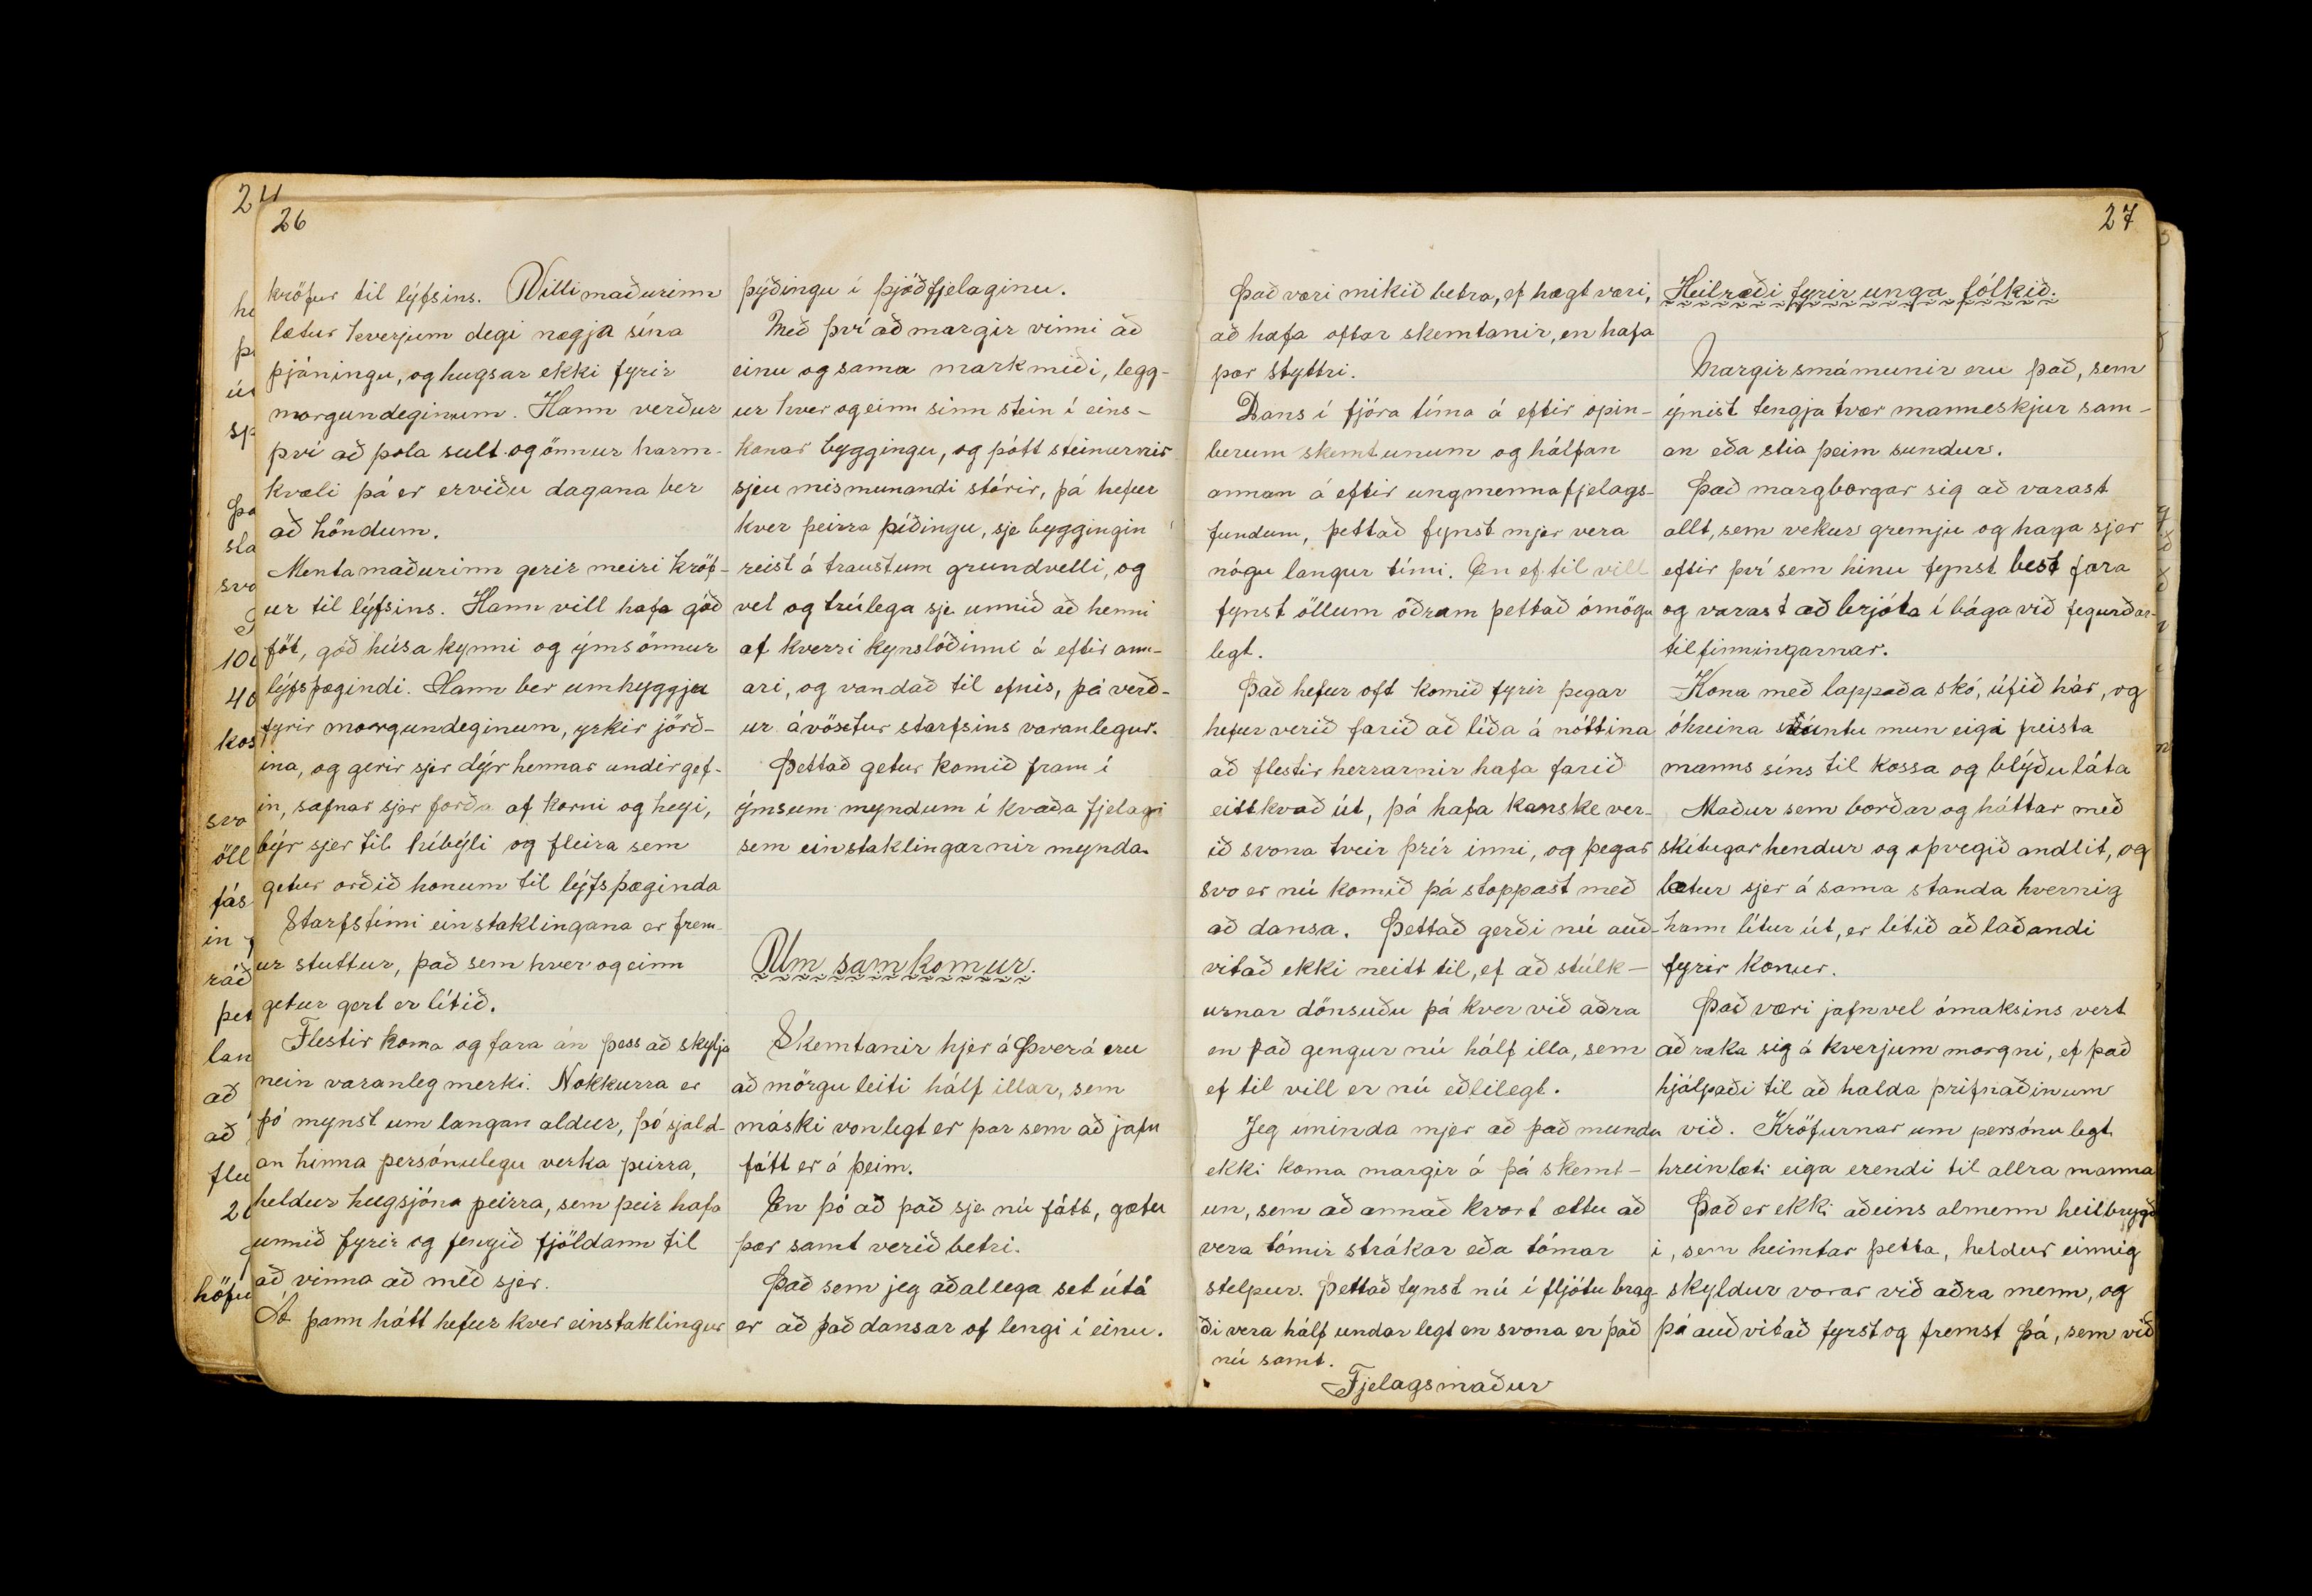 26
kröfur til lýfsins. Villimaðurinn
lætur hverjum degi nægja sína
þjáningu, og hugsar ekki fyrir
morgundeginum. Hann verður
því að þola sult og önnur harm-
kvæli þá er erviðu dagana ber
að höndum.
Mentamaðurinn gerir meiri kröf-
ur til lýfsins. Hann vill hafa góð
föt, góð húsakynni og ýms önnur
lýfsþægindi. Hann ber umhyggju
fyrir morgundeginum, yrkir jörð-
ina, og gerir sjer dýr hennar undirgef-
in, safnar sjer forða af korni og heyi,
býr sjer til híbýli og fleira sem
getur orðið honum til lýfsþæginda
Starfstími einstaklingana er frem-
ur stuttur, það sem hver og einn
getur gert er lítið.
Flestir koma og fara án þess að skylja
nein varanleg merki. Nokkurra er
þó mynst um langan aldur, þó sjald-
an hinna persónulegu verka þeirra,
heldur hugsjóna þeirra, sem þeir hafa
unnið fyrir og fengið fjöldann til
að vinna að með sjer.
Á þann hátt hefur hver einstaklingur
þýðingu í þjóðfjelaginu.
Með því að margir vinni að
einu og sama markmiði, legg-
ur hver og einn sinn stein í eins-
konar byggingu, og þótt steinurnir
sjeu mismunandi stórir, þá hefur
hver þeirra þíðingu, sje byggingin
reist á traustum grundvelli, og
vel og trúlega sje unnið að henni
af hverri kynslóðinni á eftir ann-
ari, og vandað til efnis, þá verð-
ur ávöxtur starfsins varanlegur.
Þettað getur komið fram í
ýmsum myndum í hvaða fjelagi
sem einstaklingarnir mynda.
Um samkomur.
Skemtanir hjer á Þverá eru
að mörgu leiti hálf illar, sem
máski vonlegt er þar sem að jafn
fátt er á þeim.
En þó að það sje nú fátt, gætu
þær samt verið betri.
Það sem jeg aðallega set útá
er að það dansar of lengi í einu.
27
Það væri mikið betra, ef hægt væri,
að hafa oftar skemtanir, en hafa
þær styttri.
Dans í fjóra tíma á eftir opin-
berum skemtunum og hálfan
annan á eftir ungmennafjelags-
fundum, þettað fynst mjer vera
nógu langur tími. En ef til vill
fynst öllum öðrum þettað ómögu
legt.
Það hefur oft komið fyrir þegar
hefur verið farið að líða á nóttina
að flestir herrarnir hafa farið
eitthvað út, þá hafa kanske ver-
ið svona tveir þrír inni, og þegar
svo er nú komið þá stoppast með
að dansa. Þettað gerði nú auð-
vitað ekki neitt til, ef að stúlk-
urnar dönsuðu þá hver við aðra
en það gengur nú hálf illa, sem
ef til vill er nú eðlilegt.
Jeg íminda mjer að það mundu
ekki koma margir á þá skemt-
un, sem að annað hvort ættu að
vera tómir strákar eða tómar
stelpur. Þettað fynst nú í fljótu brag-
ði vera hálf undarlegt en svona er það
nú samt.
Fjelagsmaður
Heilræði fyrir unga fólkið.
Margir smámunir eru það, sem
ýmist tengja tvær manneskjur sam-
an eða stía þeim sundur.
Það margborgar sig að varast
allt, sem vekur gremju og haga sjer
eftir því sem hinu fynst best fara
og varast að brjóta í bága við fegurðar-
tilfinningarnar.
Kona með lappaða skó, úfið hár, og
óhreina svuntu mun eigi freista
manns síns til kossa og blýðuláta
Maður sem borðar og háttar með
skítugar hendur og óþvegið andlit, og
lætur sjer á sama standa hvernig
hann lítur út, er lítið aðlaðandi
fyrir konur.
Það væri jafnvel ómaksins vert
að raka sig á hverjum morgni, ef það
hjálpaði til að halda þrifnaðinum
við. Kröfurnar um persónulegt
hreinlæti eiga erendi til allra manna
Það er ekki aðeins almenn heilbrygð
i, sem heimtar þetta, heldur einnig
skyldur vorar við aðra menn, og
þá auðvitað fyrst og fremst þá, sem við